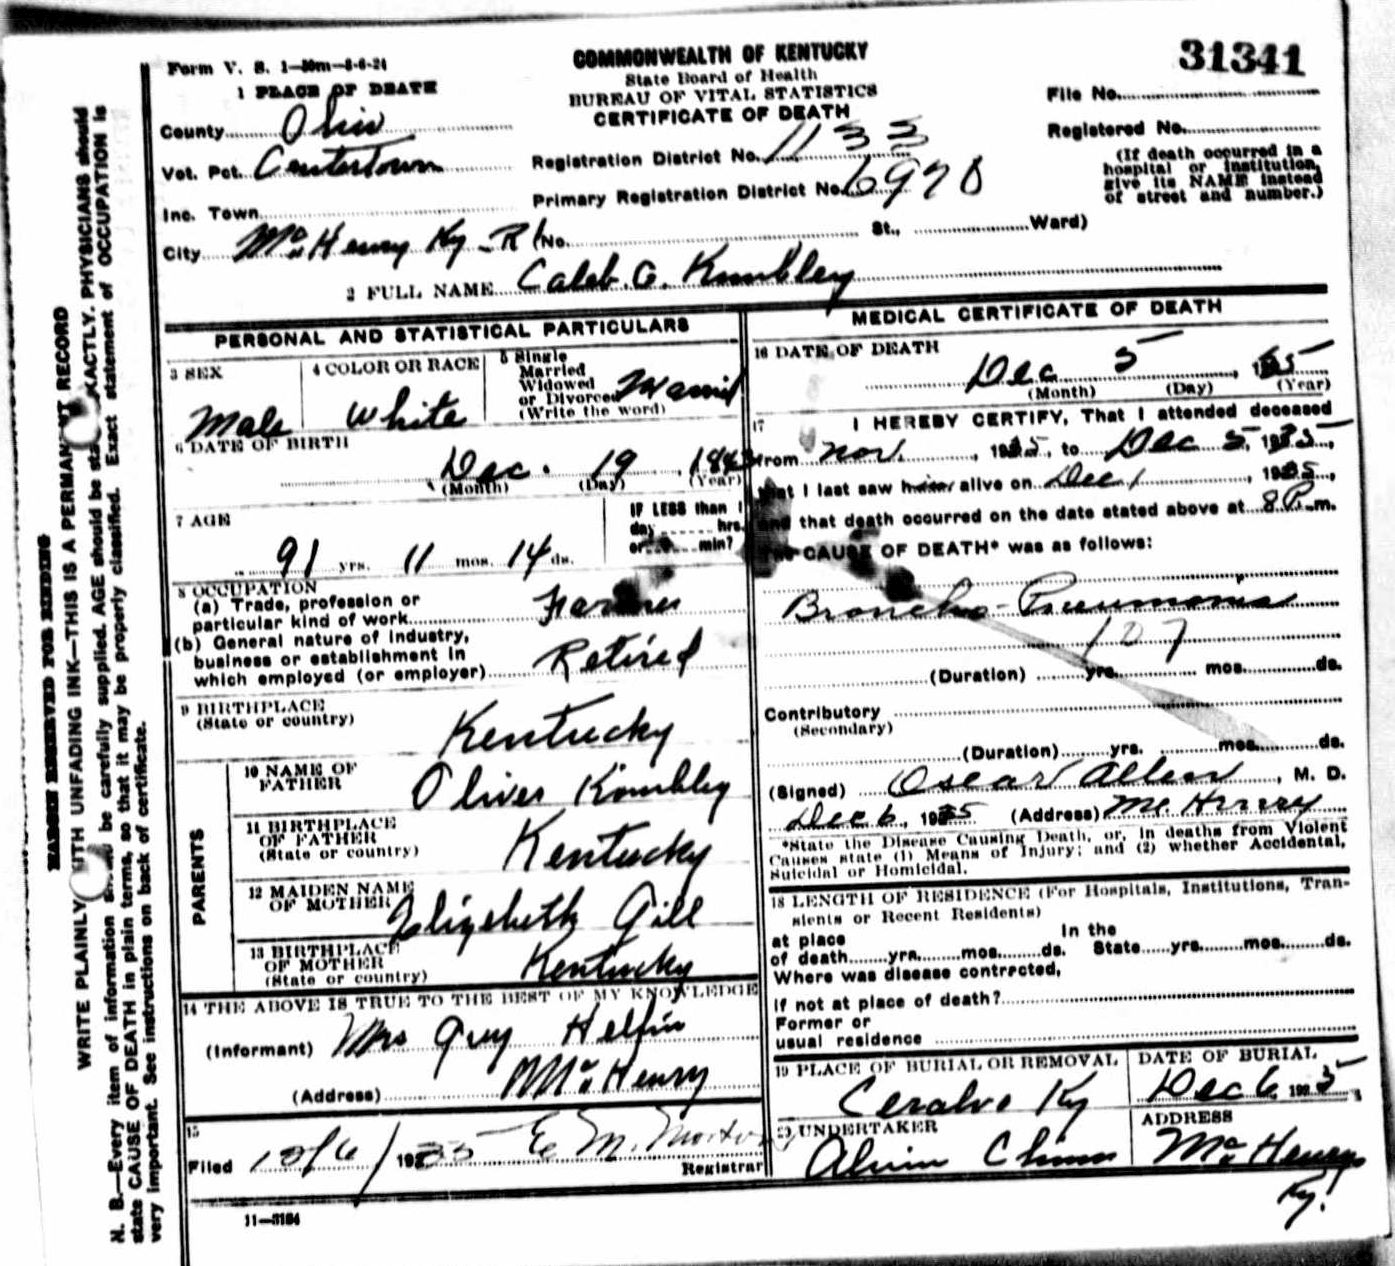 31341
Form V. S. 1—50m—8-6-24
COMMONWEALTH OF KENTUCKY
State Board of Health
BUREAU OF VITAL STATISTICS
CERTIFICATE OF DEATH
File No.
Registered No.
(If death occurred in a
hospital or institution,
give its NAME instead
of street and number.)
1 PLACE OF DEATH
County Ohio
Vot. Pct. Centertown
Registration District No. 1133
Primary Registration District No. 6970
Inc. Town
City McHenry Ky - R1 No. St., Ward)
2 FULL NAME Caleb. G. Kimbley
PERSONAL AND STATISTICAL PARTICULARS
3 SEX
Male
4 COLOR OR RACE
White
5 Single
Married
Widowed
or Divorced
(Write the word)
Married
6 DATE OF BIRTH
Dec. 19, 1843
(Month) (Day) (Year)
7 AGE
91 yrs. 11 mos. 14 ds.
IF LESS than 1
day hrs.
or min?
8 OCCUPATION
(a) Trade, profession or
particular kind of work Farmer
(b) General nature of industry,
business or establishment in
which employed (or employer) Retired
9 BIRTHPLACE
(State or country)
Kentucky
PARENTS
10 NAME OF
FATHER
Oliver Kimbley
11 BIRTHPLACE
OF FATHER
(State or country)
Kentucky
12 MAIDEN NAME
OF MOTHER
Elizebeth Gill
13 BIRTHPLACE
OF MOTHER
(State or country)
Kentucky
14 THE ABOVE IS TRUE TO THE BEST OF MY KNOWLEDGE
(Informant) Mrs Guy Heflin
(Address) McHenry
15
Filed 12/6/1935 E M. Morton
Registrar
11—3184
MEDICAL CERTIFICATE OF DEATH
16 DATE OF DEATH
Dec 5, 1935
(Month) (Day) (Year)
17
I HEREBY CERTIFY, That I attended deceased
from Nov., 1935, to Dec 5, 1935,
that I last saw him alive on Dec 1, 1935,
and that death occurred on the date stated above at 8 P.m.
The CAUSE OF DEATH* was as follows:
Broncho-Pneumonia
107
(Duration) yrs. mos. ds.
Contributory
(Secondary)
(Duration) yrs. mos. ds.
(Signed) Oscar Allen, M. D.
Dec 6, 1935 (Address) McHenry
*State the Disease Causing Death, or, in deaths from Violent
Causes state (1) Means of Injury; and (2) whether Accidental,
Suicidal or Homicidal.
18 LENGTH OF RESIDENCE (For Hospitals, Institutions, Tran-
sients or Recent Residents)
at place
of death yrs. mos. ds.
In the
State yrs. mos. ds.
Where was disease contracted,
If not at place of death?
Former or
usual residence
19 PLACE OF BURIAL OR REMOVAL
Ceralvo Ky
DATE OF BURIAL
Dec 6, 1935
20 UNDERTAKER
Alvin Chinn
ADDRESS
McHenry
Ky.
MARGIN RESERVED FOR BINDING
WRITE PLAINLY WITH UNFADING INK—THIS IS A PERMANENT RECORD
N. B.—Every item of information should be carefully supplied. AGE should be stated EXACTLY. PHYSICIANS should
state CAUSE OF DEATH in plain terms, so that it may be properly classified. Exact statement of OCCUPATION is
very important. See instructions on back of certificate.